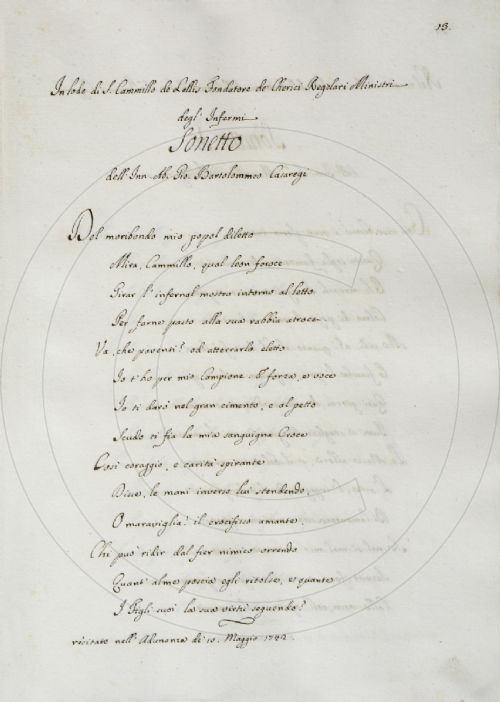 13.
In lode di S. Cammillo de Lellis Fondatore de' Cherici Regolari Ministri
degl' Infermi
Sonetto
dell' Inn. Ab. Gio. Bartolommeo Casaregi
Del moribondo mio popol diletto
Mira, Cammillo, qual leon feroce
Girar l' infernal mostro intorno al letto
Per farne pasto alla sua rabbia atroce
Va, che paventi? ad atterrarlo eletto
Io t' ho per mio Campione. E forza, e voce
Io ti darò nel gran cimento, e al petto
Scudo ti fia la mia sanguigna Croce
Così coraggio, e carità spirante
Disse, le mani inverso lui stendendo,
O maraviglia! il crocifisso amante.
Chi può ridir dal fier nimico orrendo
Quant' alme poscia egli ritolse, e quante
I Figli suoi la sua virtù seguendo?
recitato nell' Adunanza di 10. Maggio 1742.